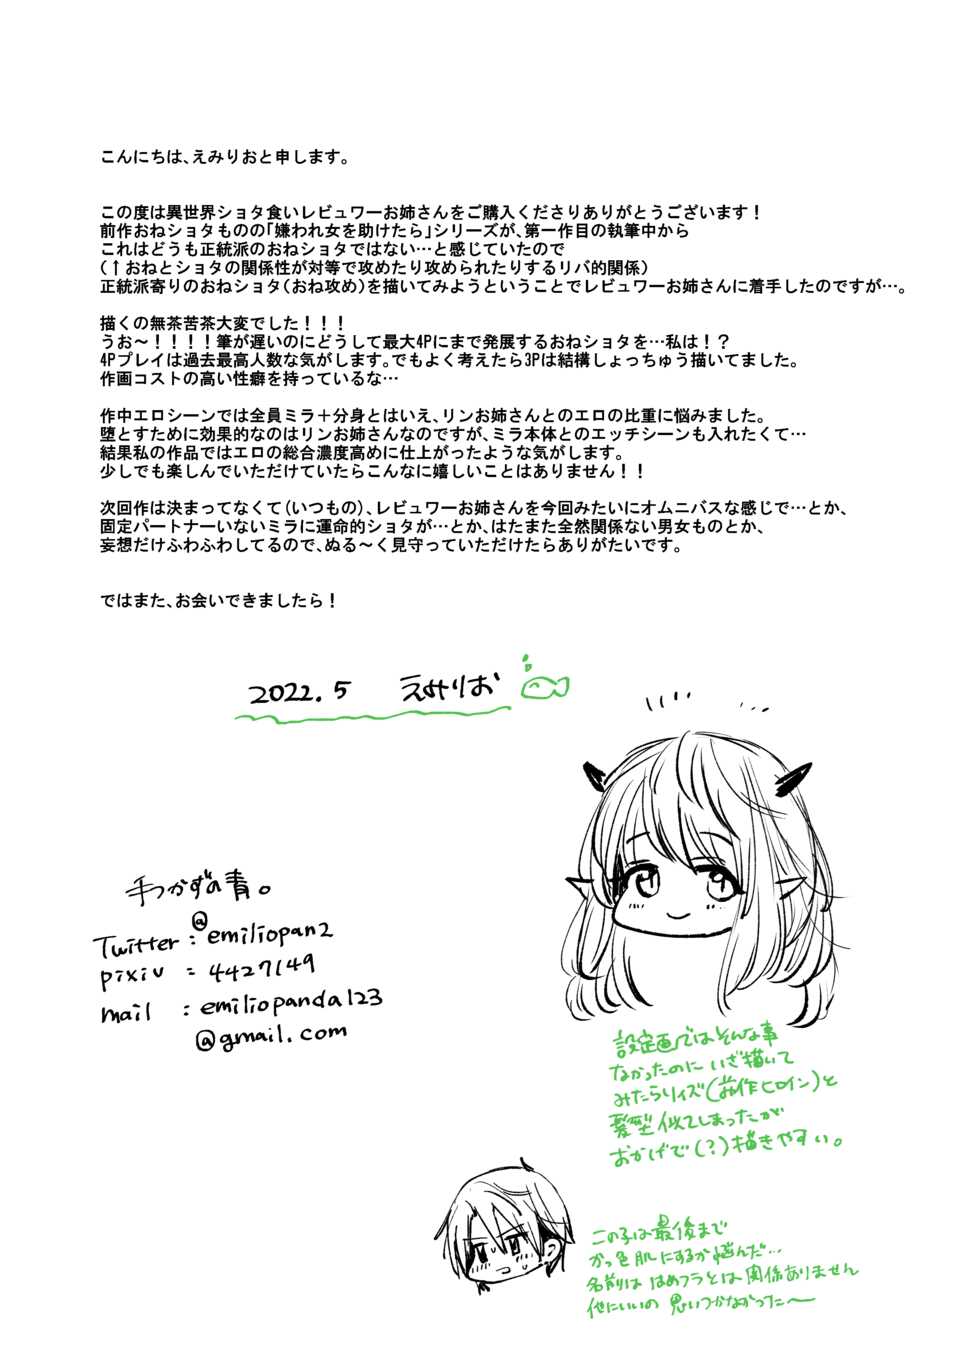 こんにちは、えみりおと申します。
この度は異世界ショタ食いレビュワーお姉さんをご購入くださりありがとうございます！
前作おねショタものの「嫌われ女を助けたら」シリーズが、第一作目の執筆中から
これはどうも正統派のおねショタではない…と感じていたので
（↑おねとショタの関係性が対等で攻めたり攻められたりするリバ的関係）
正統派寄りのおねショタ（おね攻め）を描いてみようということでレビュワーお姉さんに着手したのですが…。
描くの無茶苦茶大変でした！！！
うお～！！！！筆が遅いのにどうして最大4Pにまで発展するおねショタを…私は！？
4Pプレイは過去最高人数な気がします。でもよく考えたら3Pは結構しょっちゅう描いてました。
作画コストの高い性癖を持っているな…
作中エロシーンでは全員ミラ＋分身とはいえ、リンお姉さんとのエロの比重に悩みました。
堕とすために効果的なのはリンお姉さんなのですが、ミラ本体とのエッチシーンも入れたくて…
結果私の作品ではエロの総合濃度高めに仕上がったような気がします。
少しでも楽しんでいただけていたらこんなに嬉しいことはありません！！
次回作は決まってなくて（いつもの）、レビュワーお姉さんを今回みたいにオムニバスな感じで…とか、
固定パートナーいないミラに運命的ショタが…とか、はたまた全然関係ない男女ものとか、
妄想だけふわふわしてるので、ぬる～く見守っていただけたらありがたいです。
ではまた、お会いできましたら！
2022.5 えみりお
手つかずの青。
Twitter：@emiliopan2
pixiv：4427149
mail：emiliopanda123
@gmail.com
設定画ではそんな事
なかったのにいざ描いて
みたらリィズ(前作ヒロイン)と
髪型似てしまったが
おかげで(?)描きやすい。
この子は最後まで
かっ色肌にするか悩んだ…
名前ははめフラとは関係ありません
他にいいの思いつかなかった～